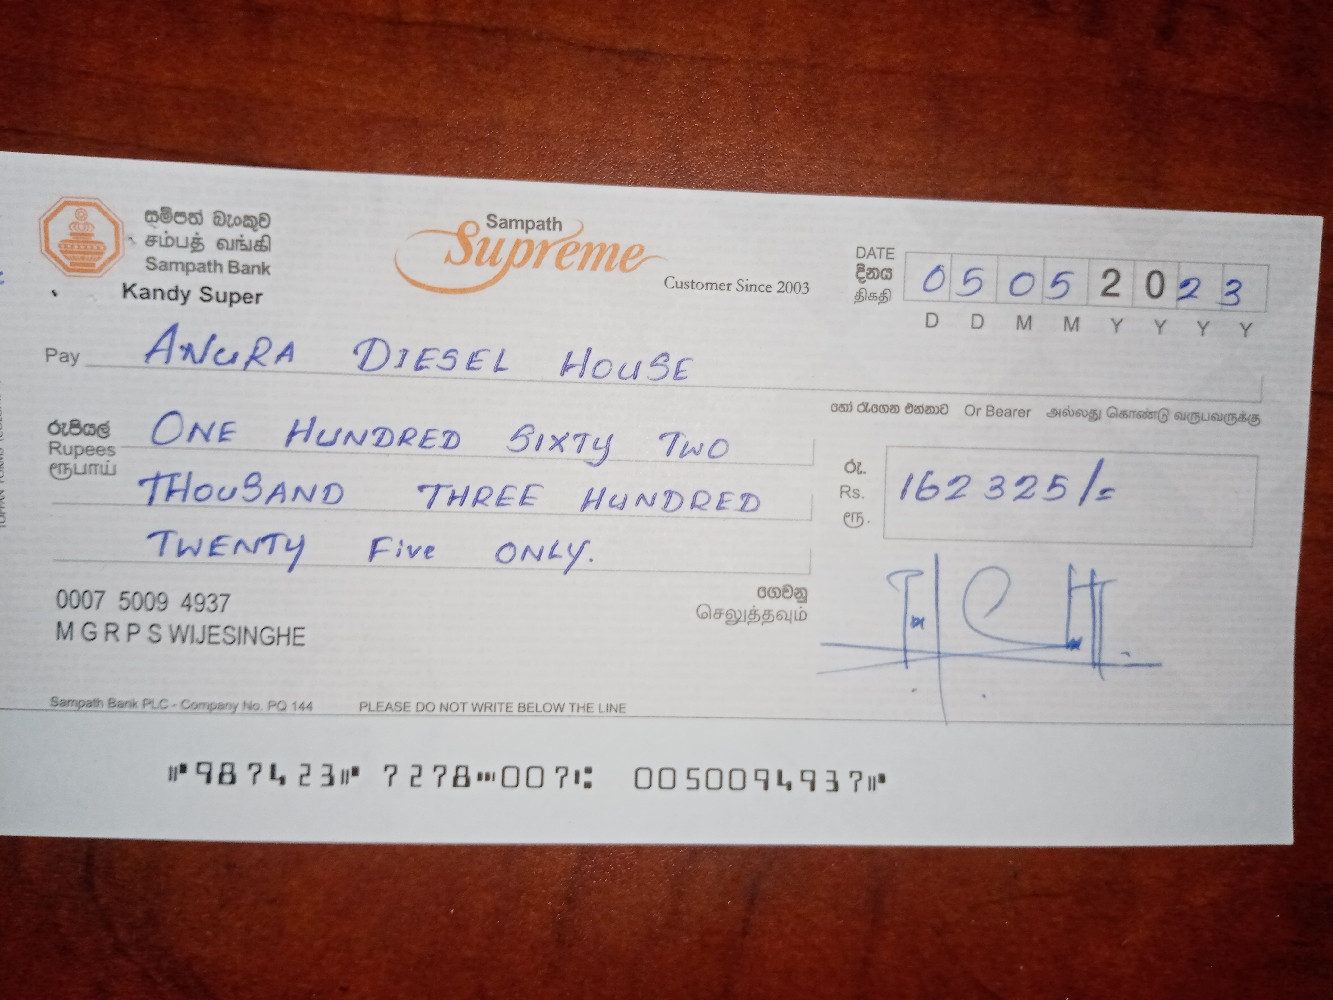 සම්පත් බැංකුව
சம்பத் வங்கி
Sampath Bank
Kandy Super
Sampath
Supreme
Customer Since 2003
DATE
දිනය
திகதி
05 05 2023
D D M M Y Y Y Y
Pay ANURA DIESEL HOUSE
හෝ රැගෙන එන්නාට Or Bearer அல்லது கொண்டு வருபவருக்கு
රුපියල්
Rupees
ரூபாய்
ONE HUNDRED SIXTY TWO
THOUSAND THREE HUNDRED
TWENTY Five ONLY.
රු.
Rs.
ரூ.
162 325/=
ගෙවනු
செலுத்தவும்
0007 5009 4937
M G R P S WIJESINGHE
Sampath Bank PLC - Company No. PQ 144 PLEASE DO NOT WRITE BELOW THE LINE
⑈987423⑈ 7278⑉007⑆ 0050094937⑈